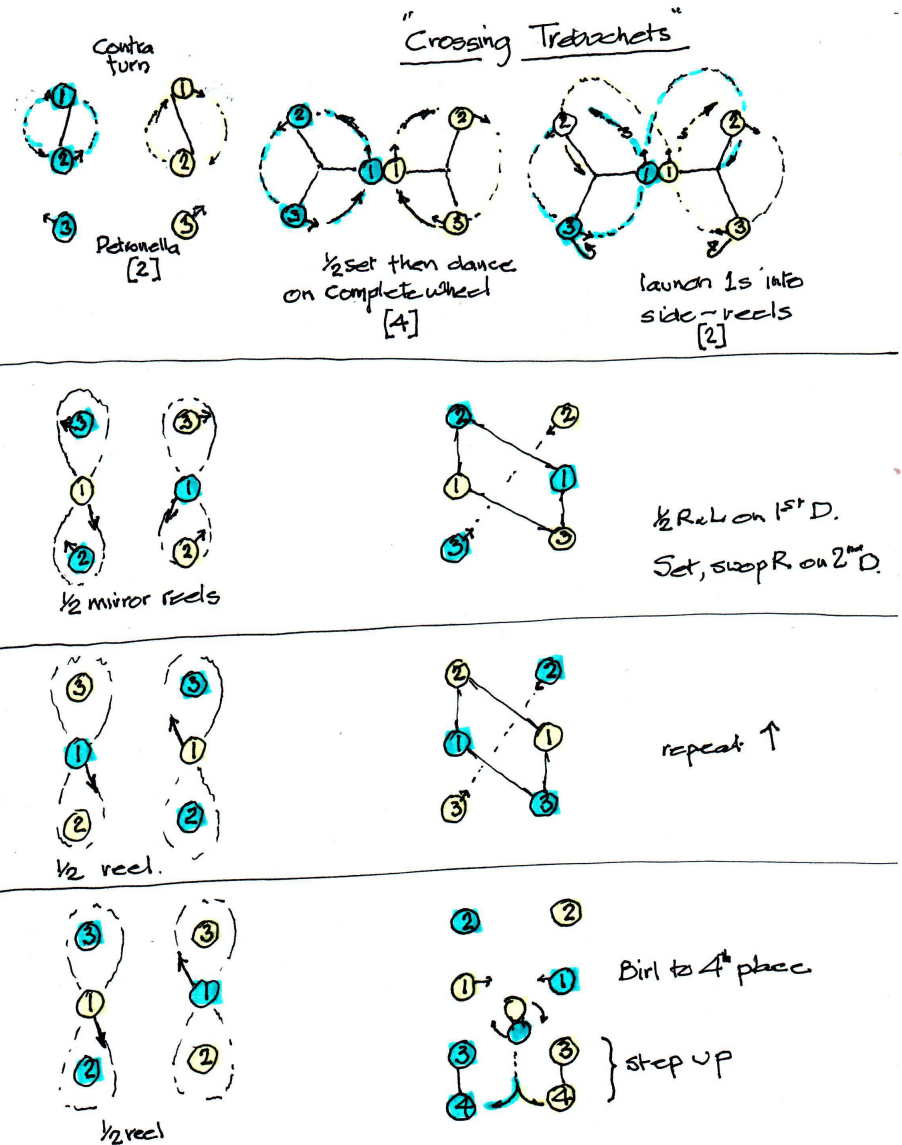 "Crossing Trebuchets"
Contra
turn
1
1
2
2
3
3
Petronella
[2]
2
2
1
1
3
3
1/2 set then dance
on complete wheel
[4]
2
2
1
1
3
3
launch 1s into
side-reels
[2]
3
3
1
1
2
2
1/2 mirror reels
2
2
1
1
3
3
1/2 R&L on 1st D.
Set, swop R. on 2nd D.
3
3
1
1
2
2
1/2 reel.
2
2
1
1
3
3
repeat ↑
3
3
1
1
2
2
1/2 reel
2
2
1
1
3
3
4
4
Birl to 4th place
step up